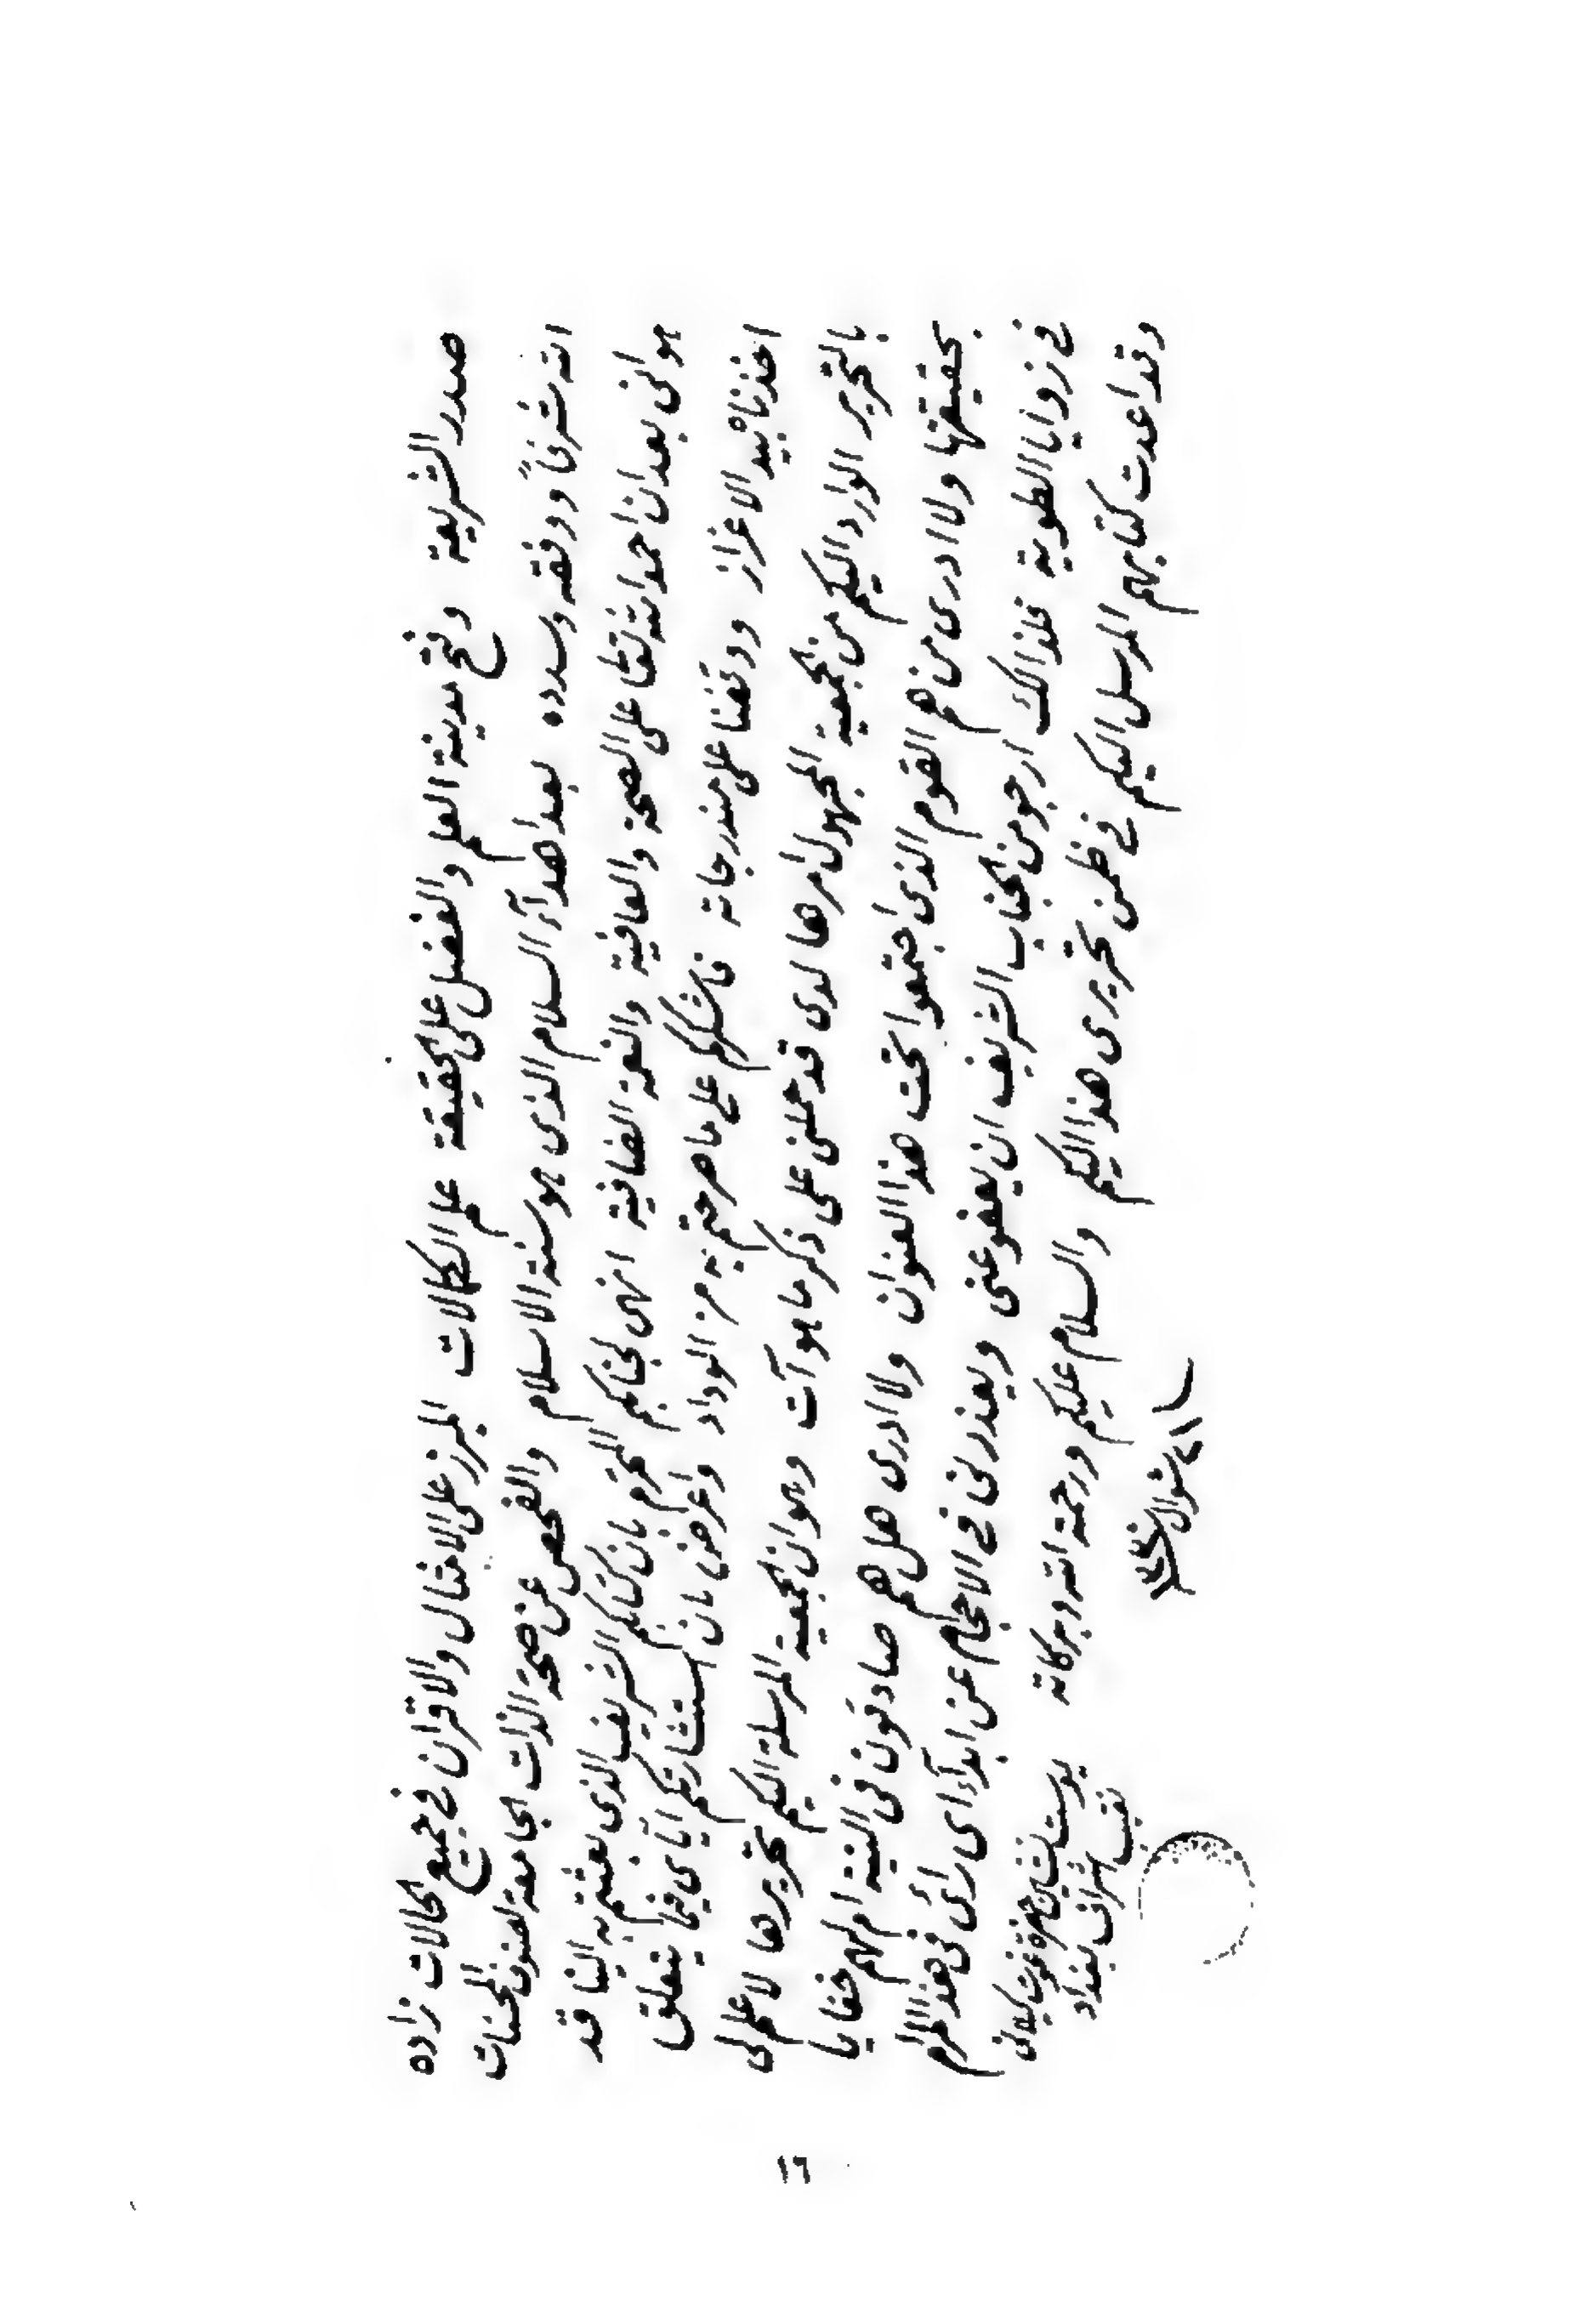 صدر الشريعة وفتح مدينة العلم والفضل على الحقيقة علم الكمالات المبرز على الامثال والاقران في جميع الحالات زاده
الله شرفاً ووفقه وسدده بعد اهدآء السلام الذي هو سنة الاسلام والفحص عن صحة الذات الجامعة لفنون المحسنات
هو اني بعد ان احمد الله تعالى على الصحة والعافية والنعمة الضافية انهى لجنابكم المحترم بان كتابكم الشريف الذي بعثتم به الينا قد
اخذناه بيد الاعزاز ووقفنا على مندرجاته فاشكركم على ما صرحتم به من الوداد واعرض بان استشارتكم اياي فيما يتعلق
بالتحرير الوارد اليكم من الجمعية المجهول امرها لدى قد حملني على ذكر ما هو آت وهو ان الجمعية المرسلة اليكم تحريرها لا علم لي
بحقيقتها ولا ادرى من هم القوم الذي اجتمعوا تحت هذا العنوان ولا ادرى هل هم صادقون في النية ام لهم خفايا
في زوايا الطوية فلذالك ارجو من الجناب الشريف ان يعفو عني ويعذرني في الاحجام عن ابدآء اي رأى في هذا المرام
وقد اعدت كتابهم المرسل اليكم في ظمن تحريري هذا اليكم والسلام عليكم ورحمة الله وبركاته
نقيب اشراف بغداد
شوال
١٦